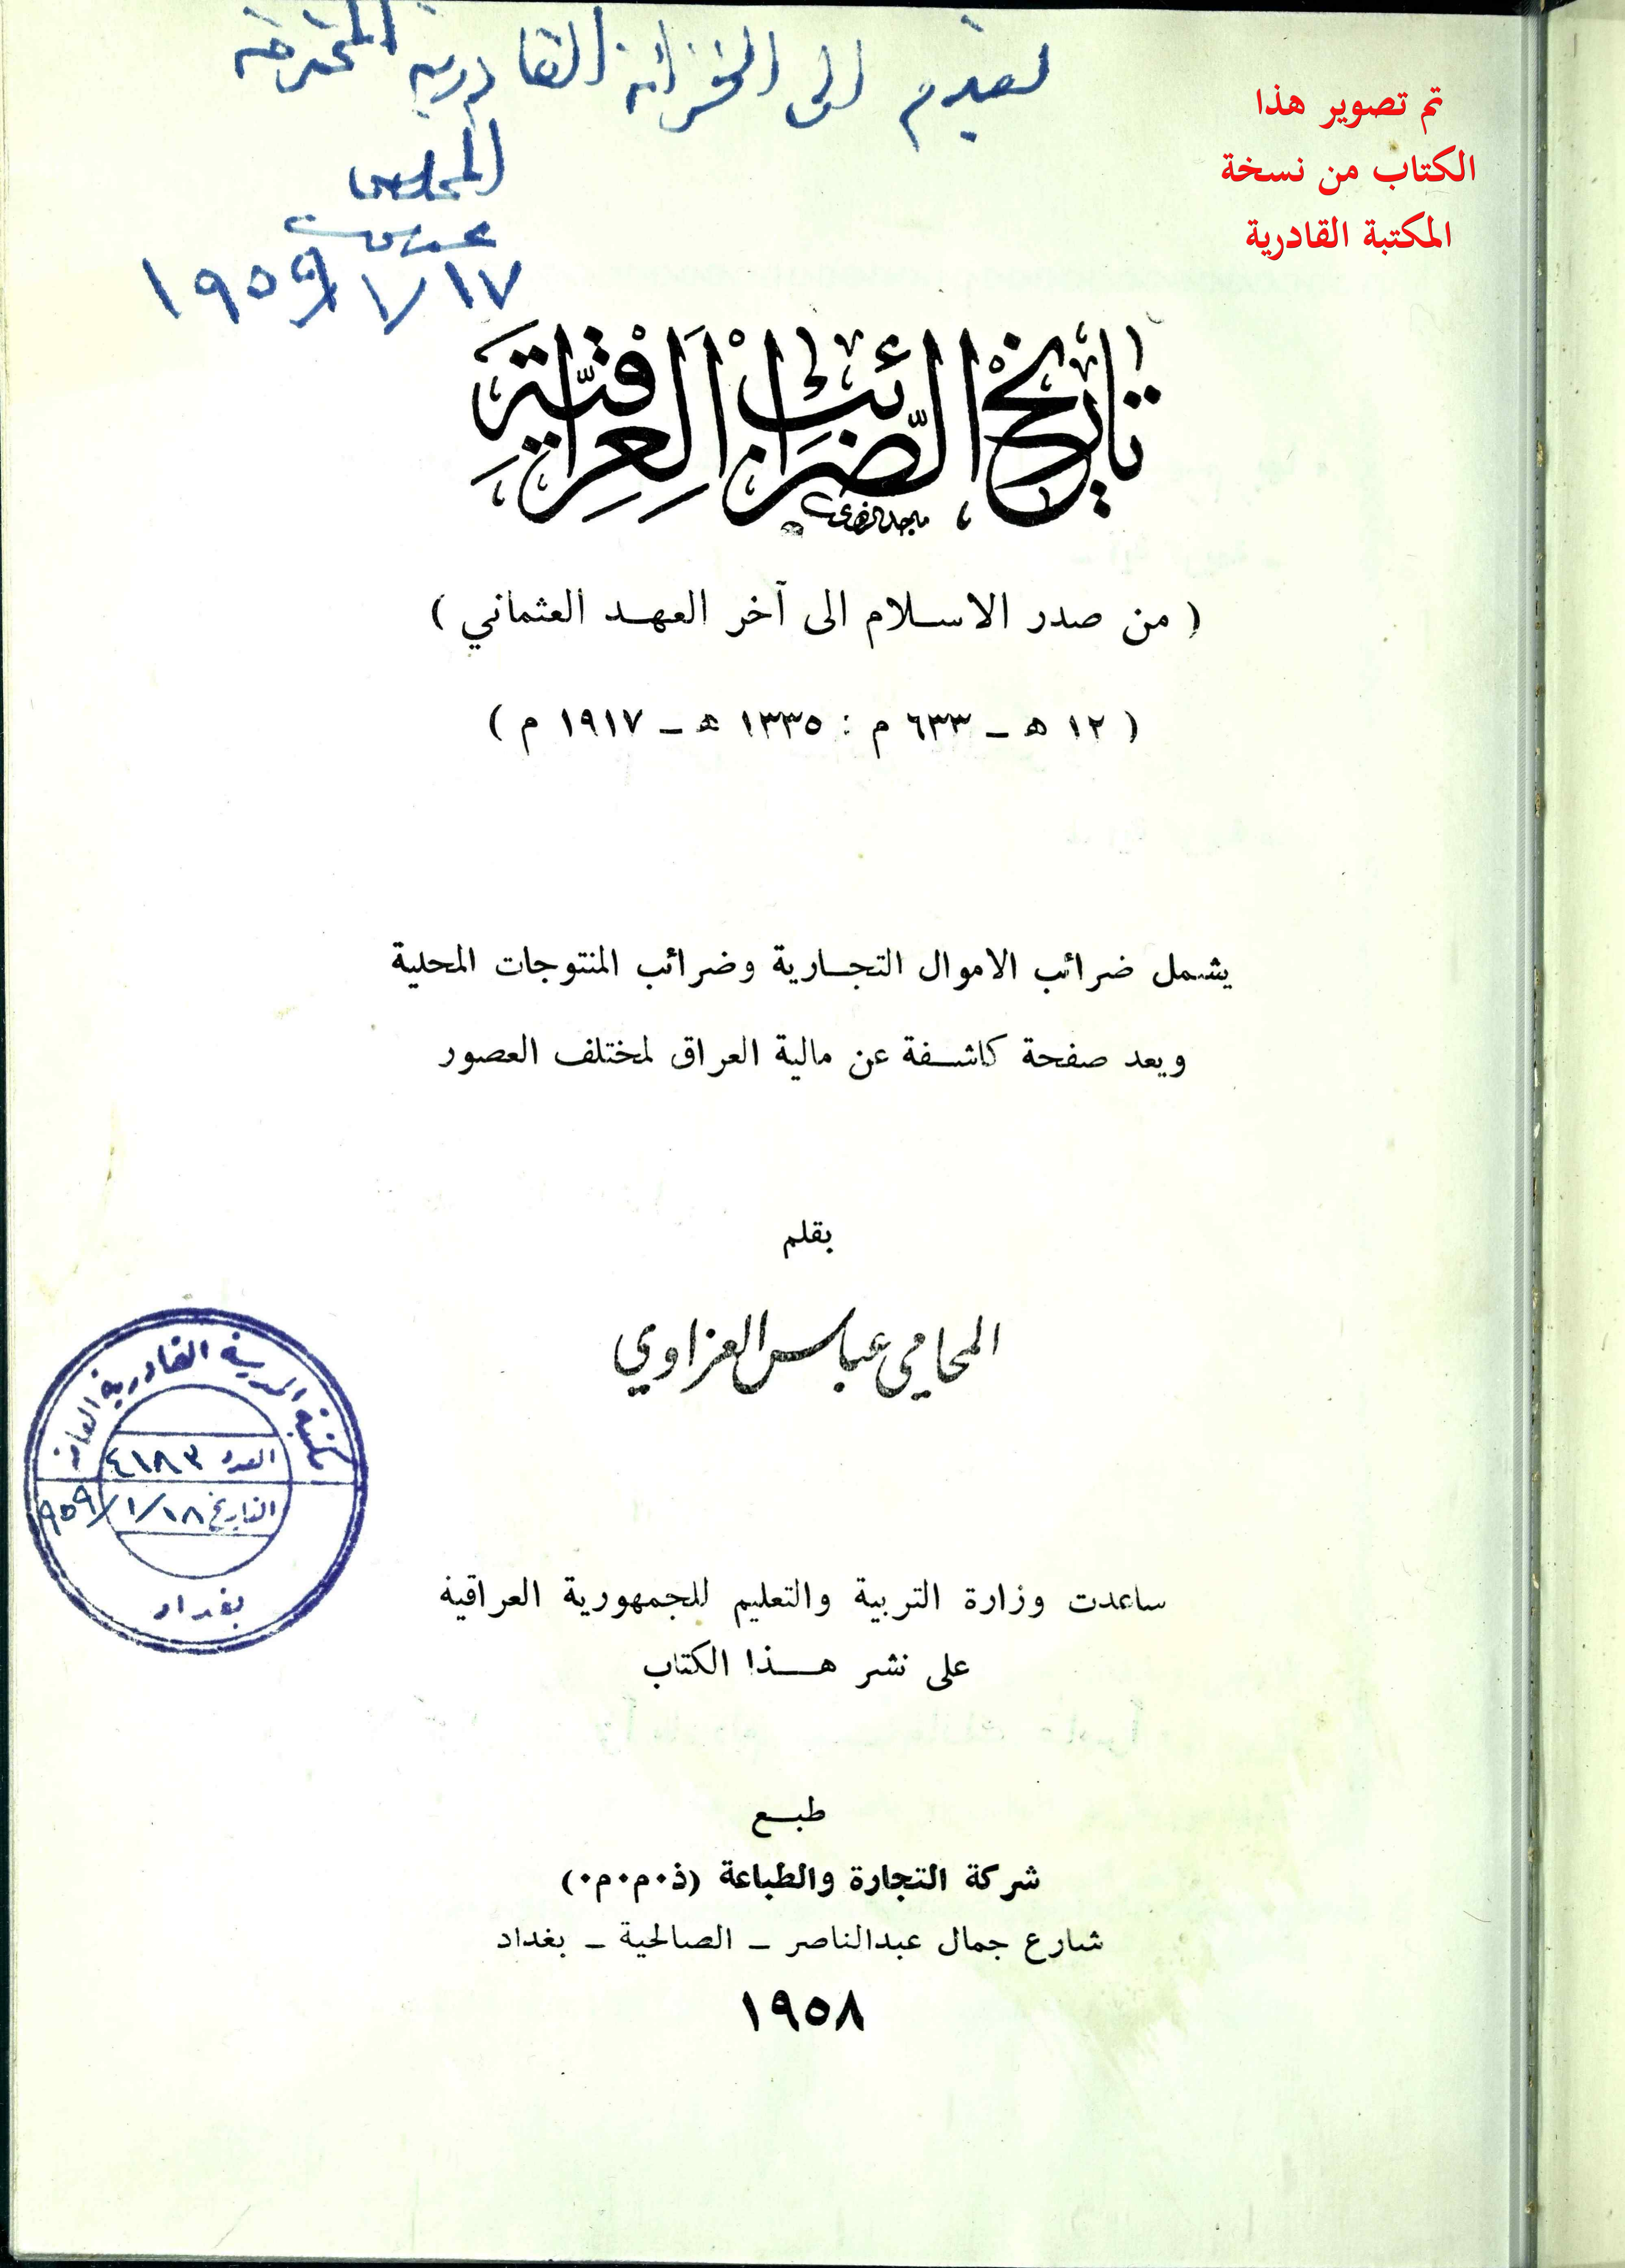 تقدم الى الخزانة القادرية المحترمة
المخلص
عباس
١٧/ ١/ ١٩٥٩
تم تصوير هذا
الكتاب من نسخة
المكتبة القادرية
تاريخ الضرائب العراقية
( من صدر الاسلام الى آخر العهد العثماني )
( ١٢ هـ - ٦٣٣ م : ١٣٣٥ هـ - ١٩١٧ م )
يشمل ضرائب الاموال التجارية وضرائب المنتوجات المحلية
ويعد صفحة كاشفة عن مالية العراق لمختلف العصور
بقلم
المحامي عباس العزاوي
مكتبة المدرسة القادرية العامة
العدد ٤١٨٣
التاريخ ١٨/ ١/ ٩٥٩
بغداد
ساعدت وزارة التربية والتعليم للجمهورية العراقية
على نشر هذا الكتاب
طبع
شركة التجارة والطباعة (ذ٠م٠م٠)
شارع جمال عبدالناصر - الصالحية - بغداد
١٩٥٨